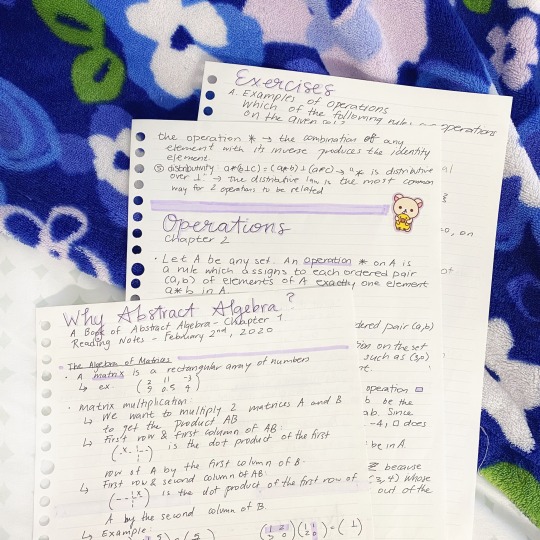 Exercises
A. Examples of operations
Which of the following rules operations
on the given
the operation * → the combination of any
element with its inverse produces the identity
element.
⑤ distributivity: a*(b⊥c)=(a*b)⊥(a*c) → "* is distributive
over ⊥" → the distributive law is the most common
way for 2 operation to be related
Operations
Chapter 2
· Let A be any set. An operation * on A is
a rule which assigns to each ordered pair
(a,b) of elements of A exactly one element
a*b in A.
so, on
ordered pair (a,b)
on the set
such as (3,0)
operation □
b be the
ab. Since
-4, □ does
be in A.
ℤ because
(3,4) whose
out of the
Why Abstract Algebra?
A Book of Abstract Algebra - Chapter 1
Reading Notes - February 2nd, 2020
- The Algebra of Matrices
· A matrix is a rectangular array of numbers
↳ ex. (2 11 -3
9 0.5 4)
· Matrix multiplication:
↳ We want to multiply 2 matrices A and B
to get the product AB
↳ First row & first column of AB:
is the dot product of the first
row of A by the first column of B.
↳ First row & second column of AB:
is the dot product of the first row of
A by the second column of B.
↳ Example: